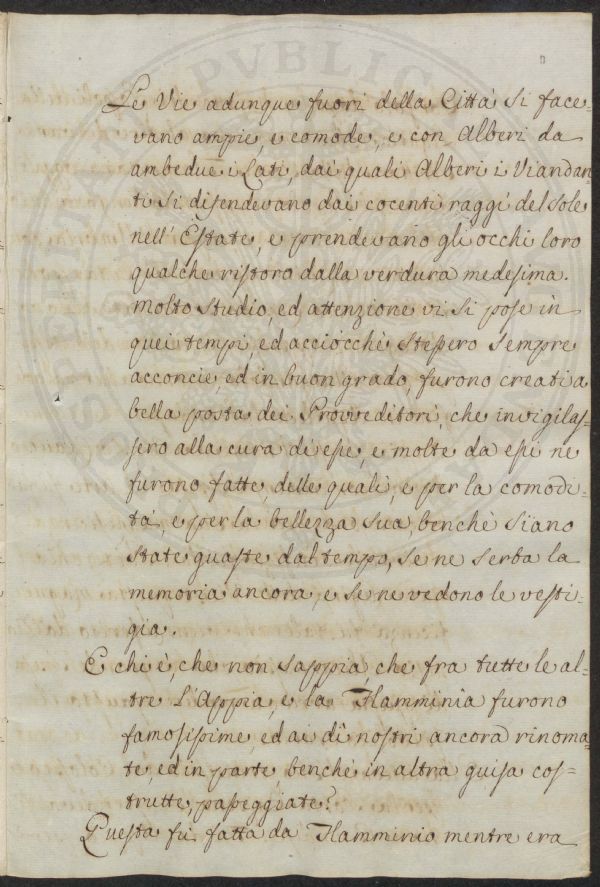 Le Vie adunque fuori della Città si face-
vano ampie, e comode, e con Alberi da
ambedue i Lati, dai quali Alberi i Viandan-
ti si difendevano dai cocenti raggi del sole
nell' Estate, e prendevano gli occhi loro
qualche ristoro dalla verdura medesima.
Molto studio, ed attenzione vi si pose in
quei tempi, ed acciocchè stessero sempre
acconcie, ed in buon grado, furono creati a
bella posta dei Provveditori, che invigilas-
sero alla cura di esse, e molte da essi ne
furono fatte, delle quali, e per la comodi-
tà, e per la bellezza sua, benchè siano
state guaste dal tempo, se ne serba la
memoria ancora, e se ne vedono le vesti-
gia.
E chi è, che non sappia, che fra tutte le al-
tre l'Appia, e la Flamminia furono
famosissime, ed ai dì nostri ancora rinoma-
te, ed in parte benchè in altra guisa cos-
trutte, passeggiate?
Questa fu fatta da Flamminio mentre era
PVBLIC